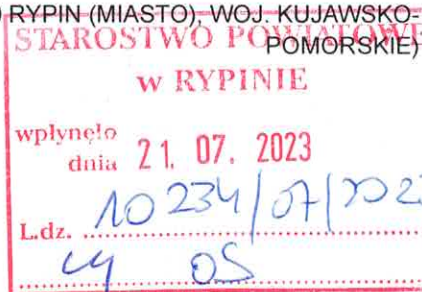 ) RYPIN (MIASTO), WOJ. KUJAWSKO-
POMORSKIE)
STAROSTWO POWIATOWE
w RYPINIE
wpłynęło
dnia 21. 07. 2023
L.dz. 10234/07/202
OS